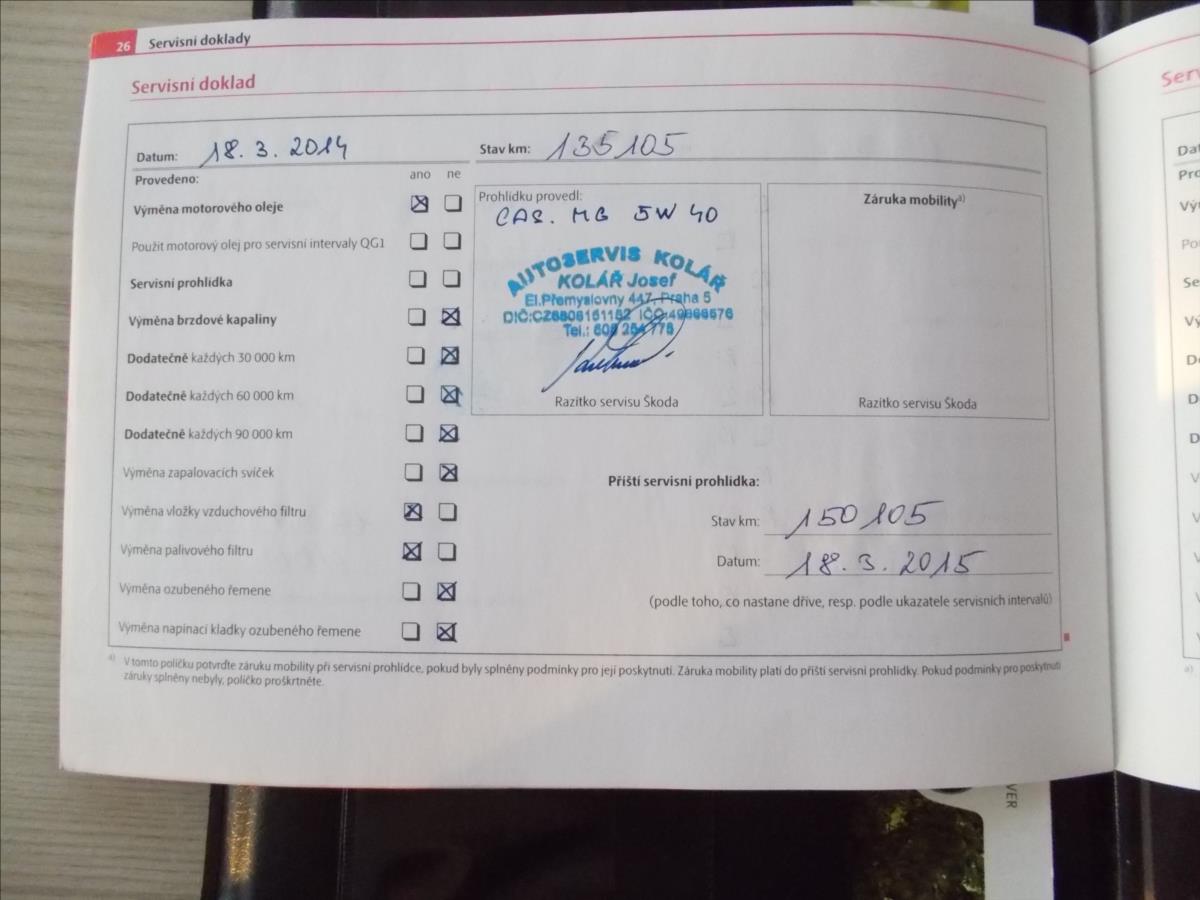 26 Servisní doklady
Servisní doklad
Datum: 18. 3. 2014 Stav km: 135105
Provedeno: ano ne
Výměna motorového oleje
Použit motorový olej pro servisní intervaly QG1
Servisní prohlídka
Výměna brzdové kapaliny
Dodatečně každých 30 000 km
Dodatečně každých 60 000 km
Dodatečně každých 90 000 km
Výměna zapalovacích svíček
Výměna vložky vzduchového filtru
Výměna palivového filtru
Výměna ozubeného řemene
Výměna napínací kladky ozubeného řemene
Prohlídku provedl:
CAS. MG 5W 40
AUTOSERVIS KOLÁŘ
KOLÁŘ Josef
El.Přemyslovny 447, Praha 5
Tel.:
Razítko servisu Škoda
Záruka mobility a)
Razítko servisu Škoda
Příští servisní prohlídka:
Stav km: 150105
Datum: 18. 3. 2015
(podle toho, co nastane dříve, resp. podle ukazatele servisních intervalů)
a) V tomto políčku potvrďte záruku mobility při servisní prohlídce, pokud byly splněny podmínky pro její poskytnutí. Záruka mobility platí do příští servisní prohlídky. Pokud podmínky pro poskytnutí
záruky splněny nebyly, políčko proškrtněte.
VER